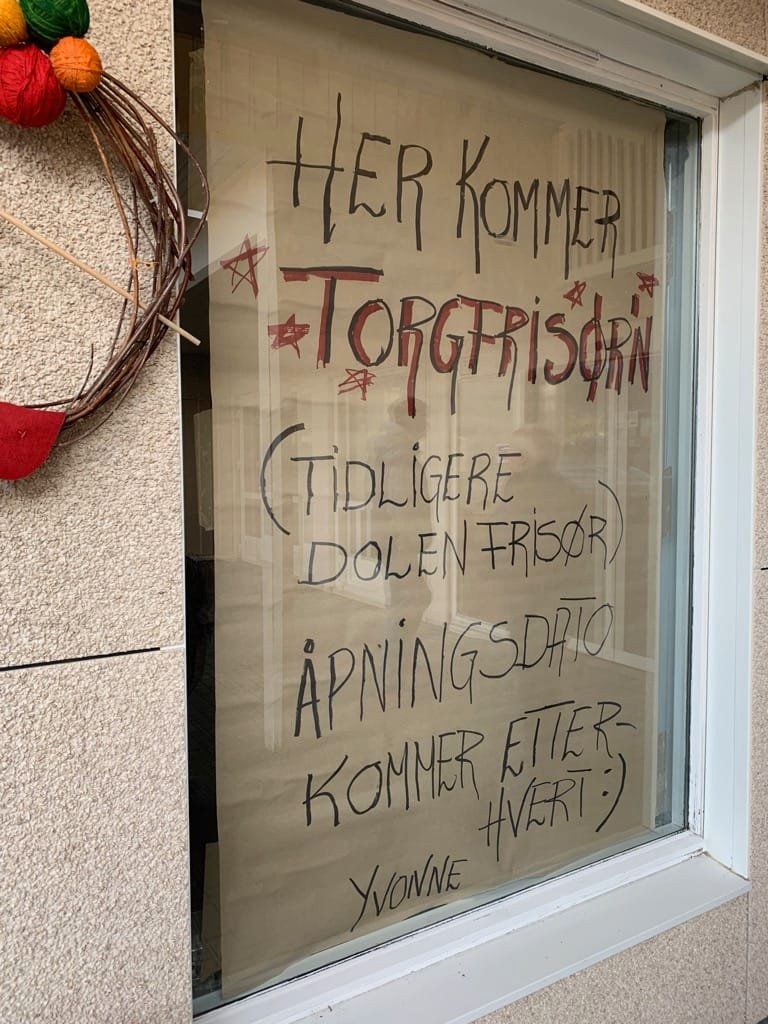 HER KOMMER
TORGFRISØR'N
(TIDLIGERE
DOLEN FRISØR)
ÅPNINGSDATO
KOMMER ETTER-
HVERT :)
YVONNE